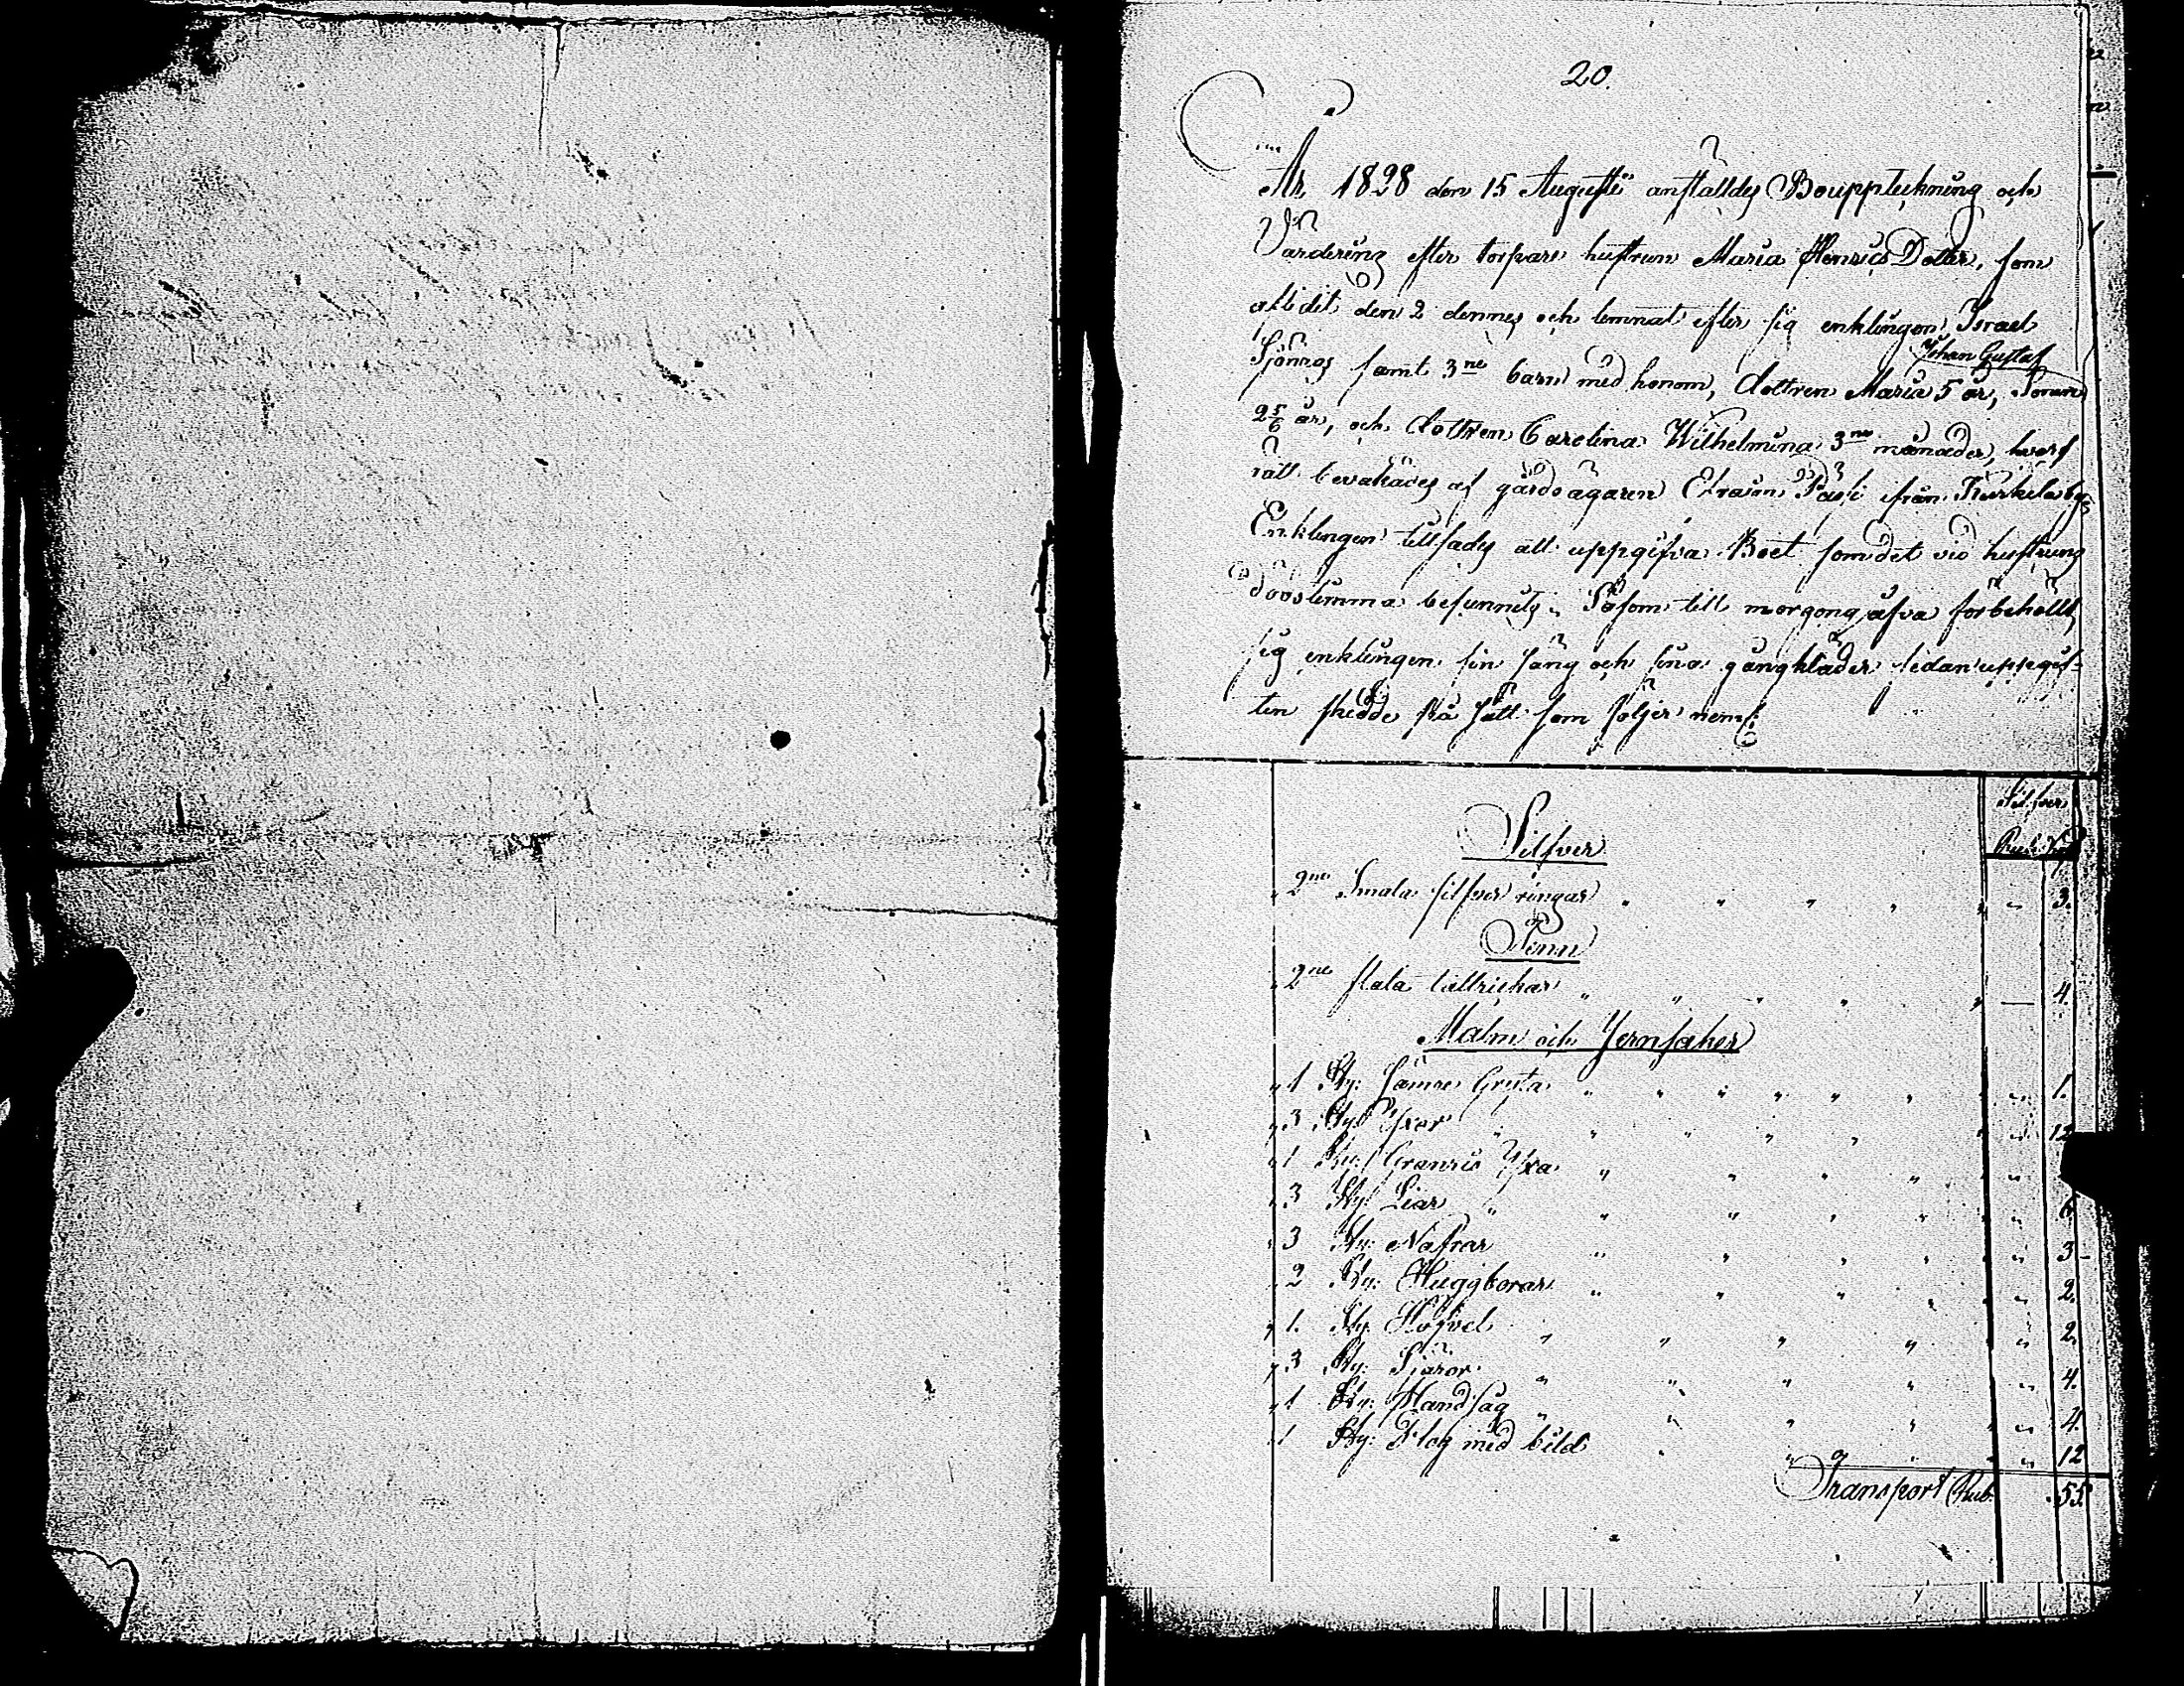 20.
År 1828 den 15 Augusti anställdes Bouppteckning och
Värdering efter torpare hustrun Maria Henrics Dotter, som
aflidit den 2 dennes och lemnat efter sig enklingen Israel
Johan Gustaf
samt 3ne barn med honom, dottren Maria 5 år, Sonen
2 5/6 år, och dottren Carolina Wilhelmina 3ne månader, hvars
rätt bevakades af gårdsägaren Efraim från
Enklingen tillsades att uppgifva Boet som det vid hustruns
dödstimma befunnits. Såsom till morgongåfva förbehöllt
sig enklingen sin säng och sina gångkläder sedan uppgif-
ten skedde på sätt som följer neml:
Silfver
Rub. Kop
Silfver
2ne Smala silfver ringar " " " " " " 3.
Tenn
2ne flata talrickar " " " " " — 4.
Malm och Jernsaker
1 St: Gryta " " " " " " " 1.
3 St: Yxor " " " " " " 12
1 St: Yxa " " " " " "
3 St: Liar " " " " " " 6
3 St: Nafrar " " " " " " 3
2 St: Huggborar " " " " " " 2.
1. St: Höfvel " " " " " 2
3 St: " " " " " 4.
1 St: Handsåg " " " " " " 4.
1 St: Plog med bild " " " " " 12
Transport Rub. 55